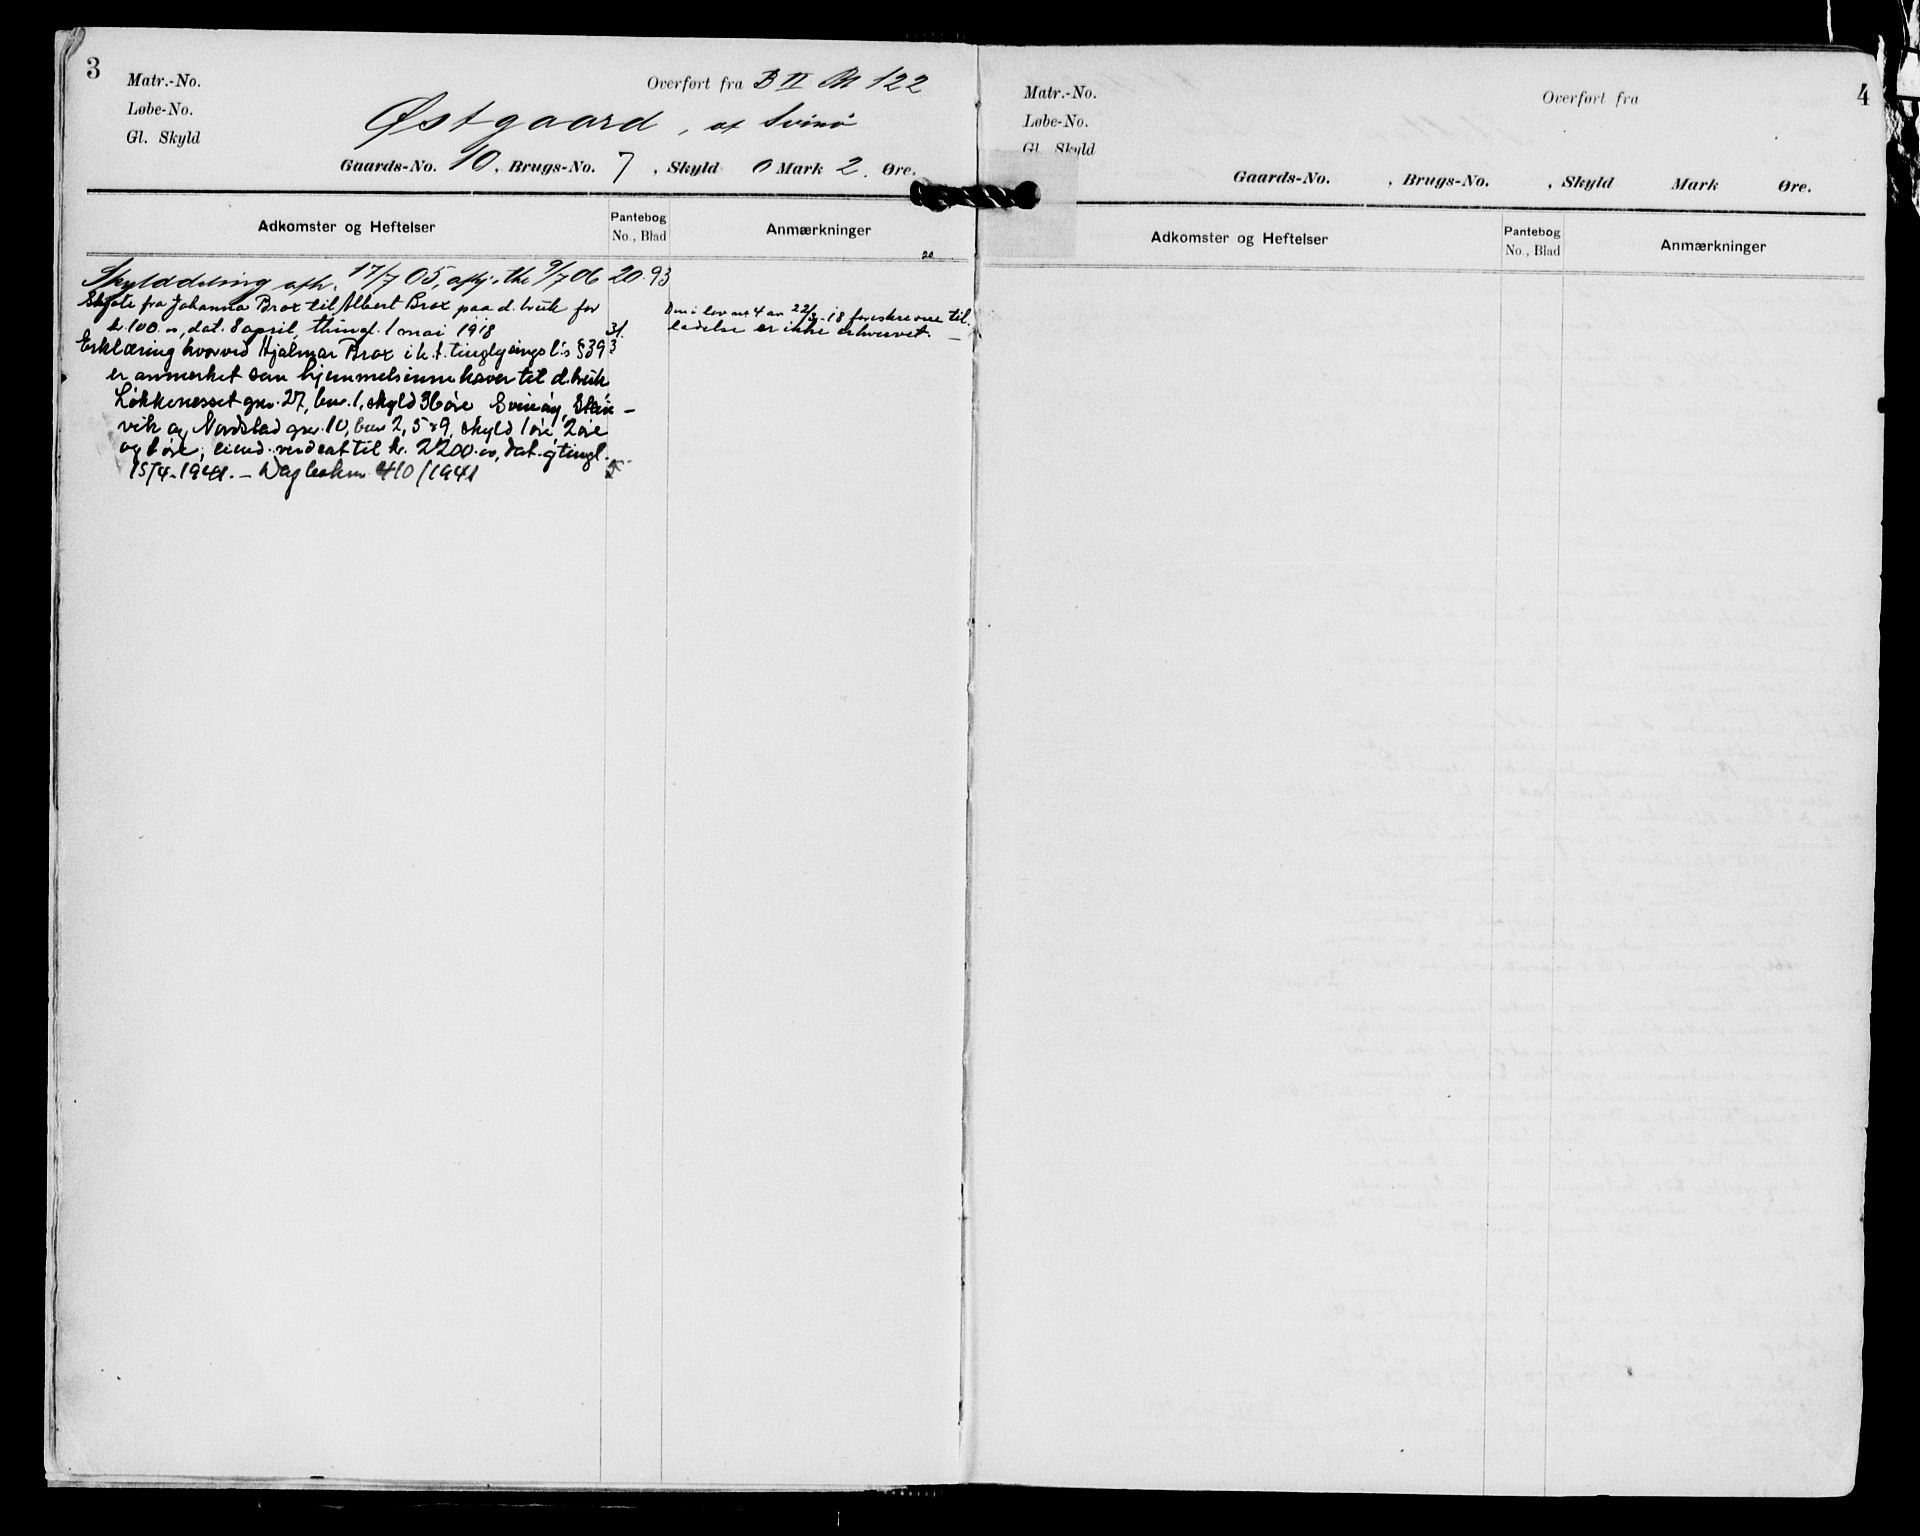 3
Matr.-No.
Overført fra B II Bl 122
Løbe-No.
Østgaard, af Svinö
Gl. Skyld
Gaards-No. 10, Brugs-No. 7, Skyld 0 Mark 2. Øre.
Adkomster og Heftelser
Pantebog
No., Blad
Anmærkninger
20
Skylddeling afh. 17/7 05, 9/7 06 20.93
Skjøte fra Johanna Brox til Albert Brox paa d. bruk for
kr. 100.00, dat. 8 april, thingl. 1 mai 1918
Den i lov nr 4 av 22/3-18 foreskrevne til-
ladelse er ikke erhvervet. —
Erklæring hvorved Hjalmar Brox i h.t. tinglysingsl's § 39
er anmerket som hjemmelsinnehaver til d. bruk
Løkkenesset gnr. 27, bnr. 1, skyld 36 øre Svinøy, Stein-
vik og Nordstad gnr. 10, bnr 2, 5 & 9, skyld 1 øre, 2 øre
og 6 øre, eiend. verdsat til kr. 2200.00, dat. og tingl.
15/4-1941. — Dagboknr 410/1941
4
Matr.-No.
Overført fra
Løbe-No.
Gl. Skyld
Gaards-No. , Brugs-No. , Skyld Mark Øre.
Adkomster og Heftelser
Pantebog
No., Blad
Anmærkninger